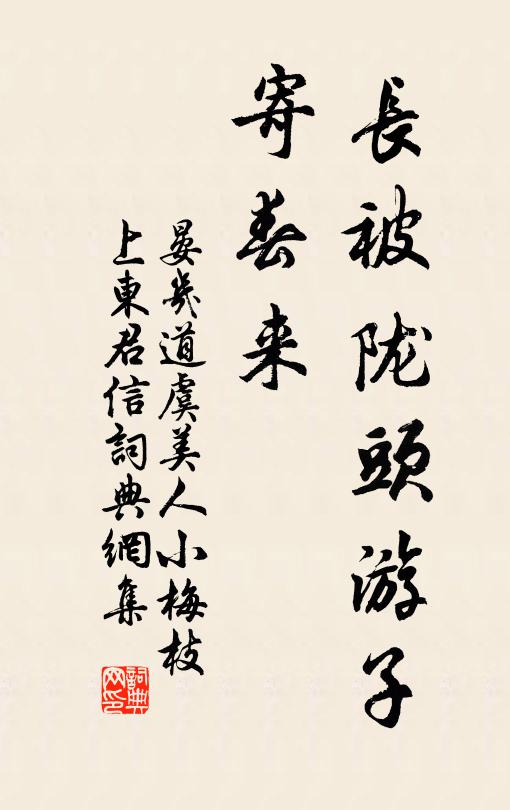 長被陇頭游子
寄春来
晏幾道虞美人小梅枝
上東君信詞典網集
詞典
网印